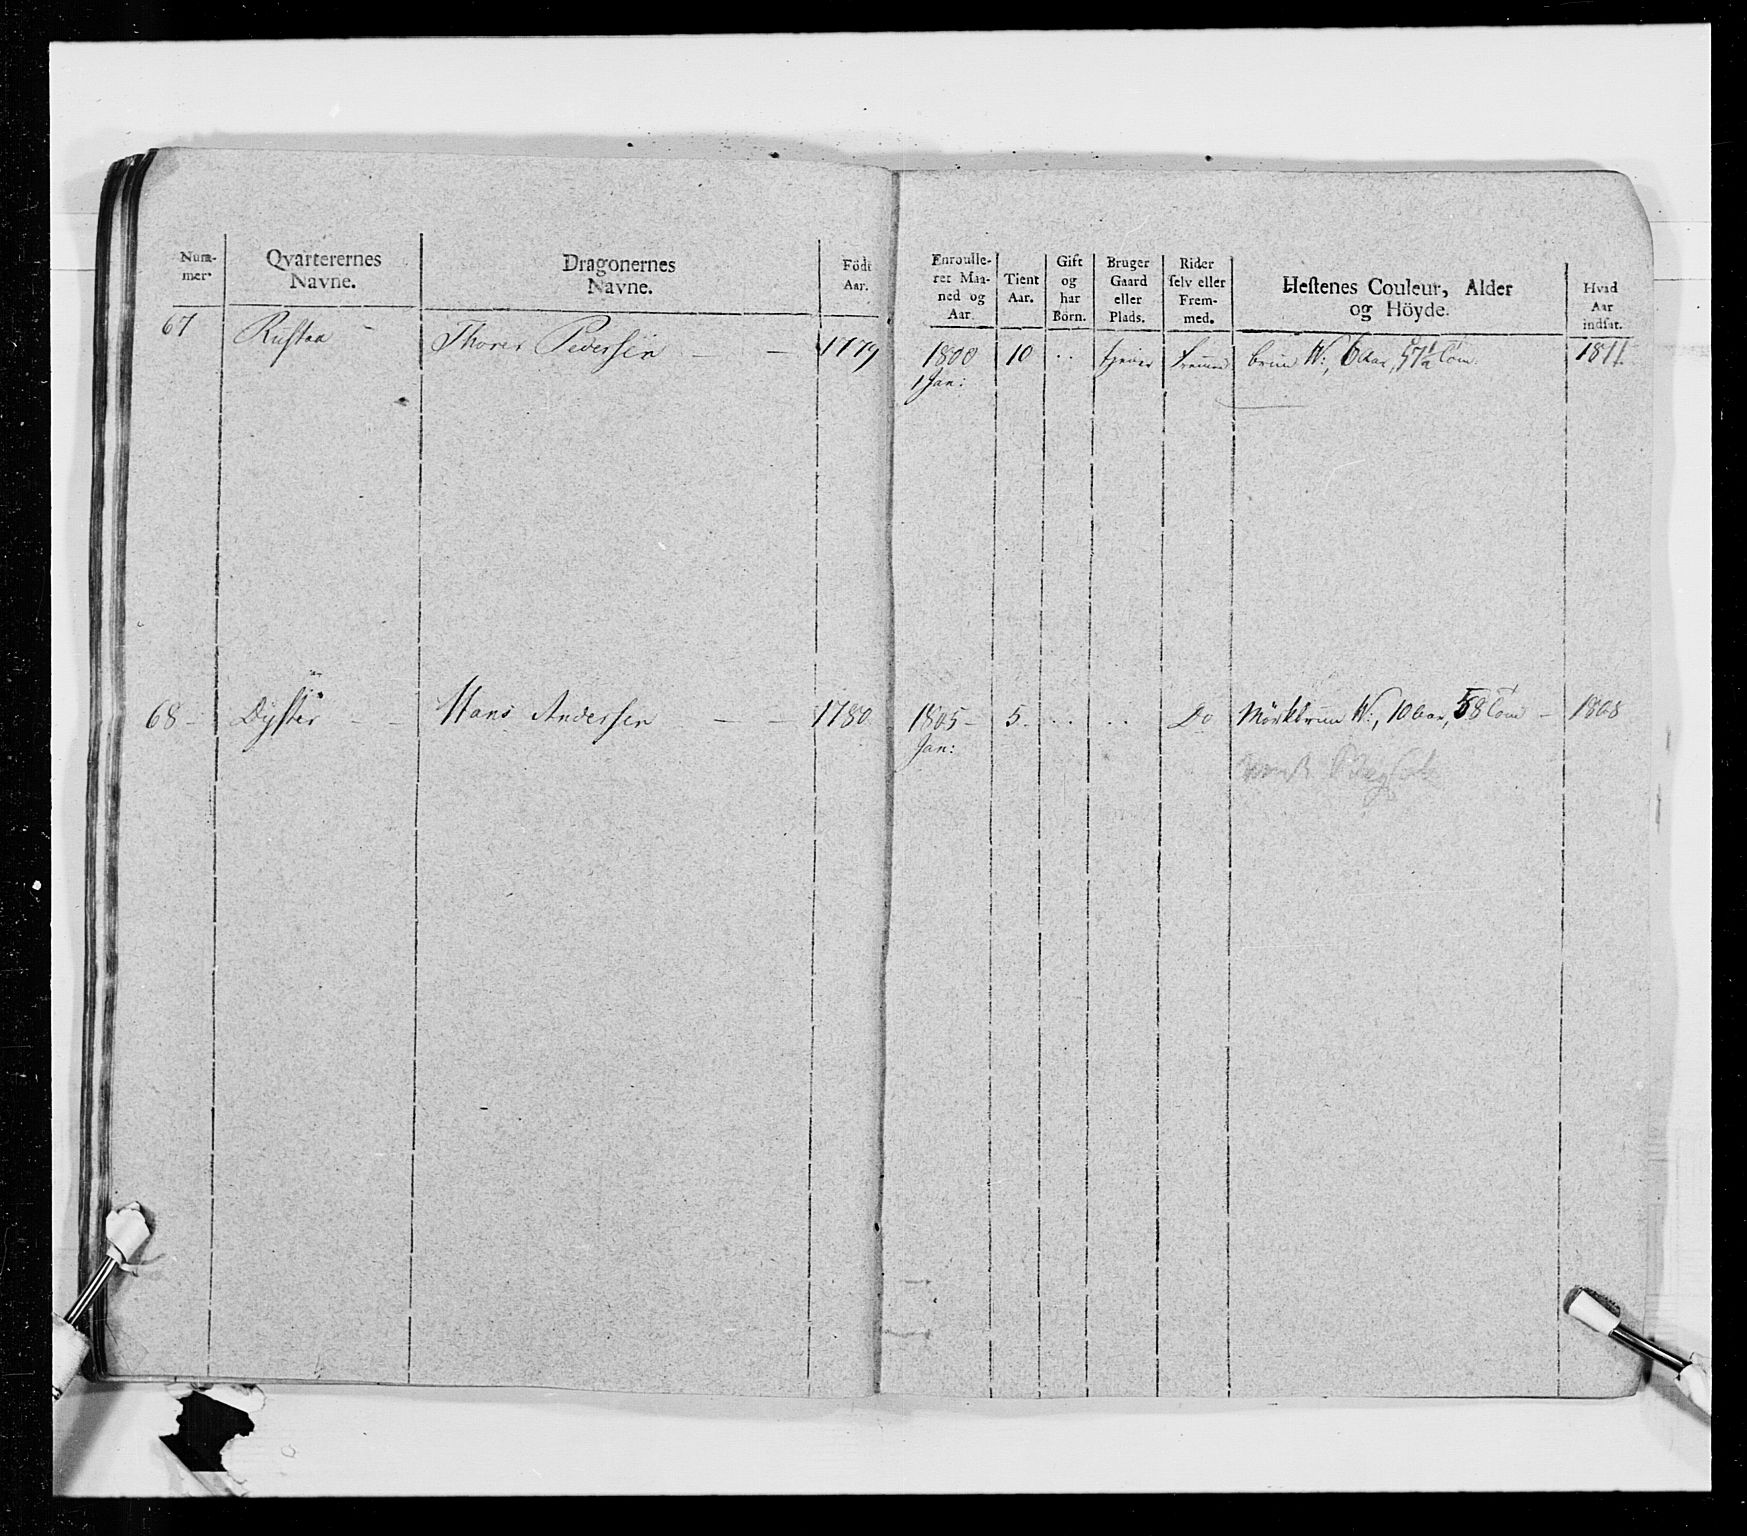 Num-
mer.
Qvarterernes
Navne.
Dragonernes
Navne.
Födt
Aar.
Enroulle-
ret Maa-
ned og
Aar.
Tient
Aar.
Gift
og
har
Börn.
Bruger
Gaard
eller
Plads.
Rider
selv eller
Frem-
med.
Hestenes Couleur, Alder
og Höyde.
Hvad
Aar
indsat.
67 Rustaa - Thorer Pedersen - - 1779 1800 10 .. tjener fremed brun W:, 6 Aar, 57½ Tom. 1811.
1 Jan:
68 - Dyster - - Hans Andersen - - 1780 1805 - 5. .. .. Do Mörkbrun W:, 10 Aar, 58 Tom - 1808
Jan: